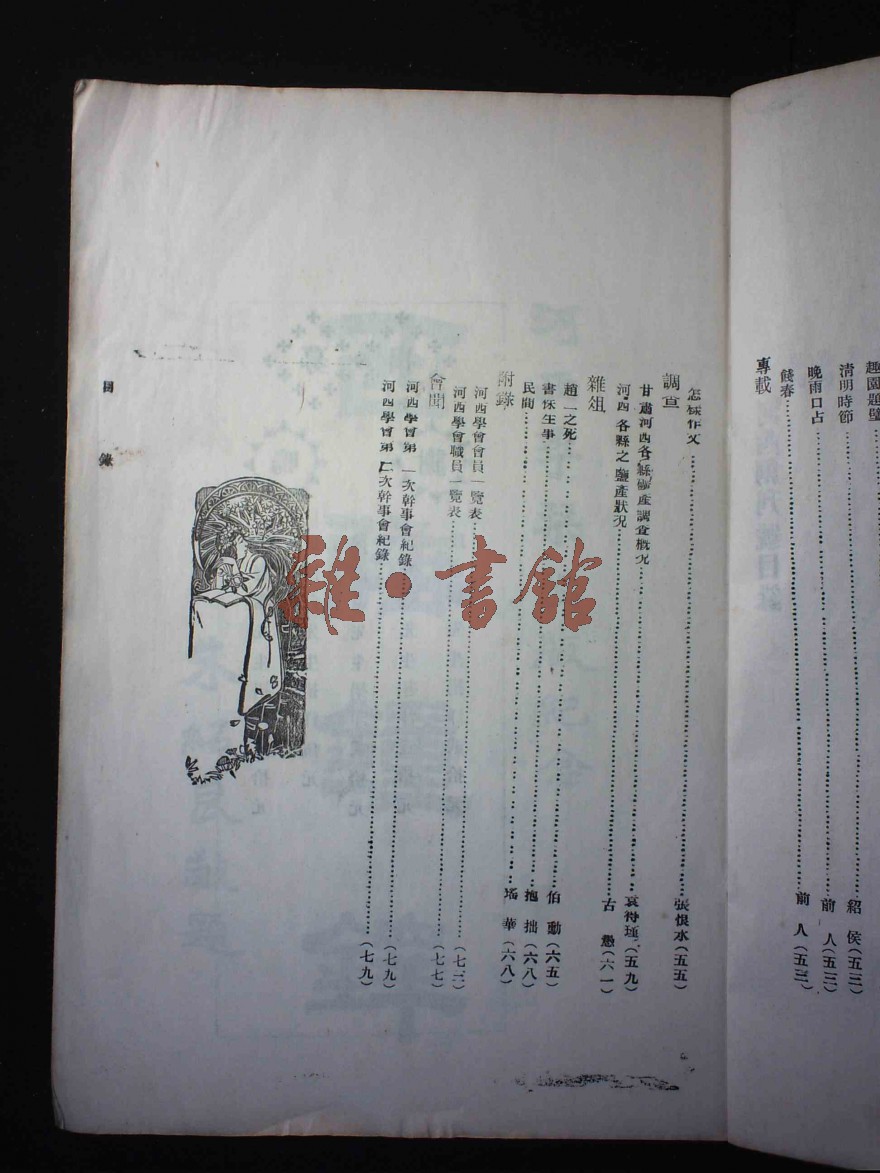 趣園題壁
清明時節……紹侯(五三)
晚雨口占……前人(五三)
餞春……前人(五三)
專載
怎樣作文……張恨水(五五)
調查
甘肅河西各縣礦產調查概況……袁得瑾(五九)
河西各縣之鹽產狀況……古愚(六一)
雜俎
趙一之死……伯動(六五)
書怀生事……抱拙(六八)
民間……瑤華(六八)
附錄
河西學會會員一覽表……(七二)
河西學會職員一覽表……(七七)
會聞
河西學會第一次幹事會紀錄……(七九)
河西學會第二次幹事會紀錄……(七九)
目錄
雜·書館